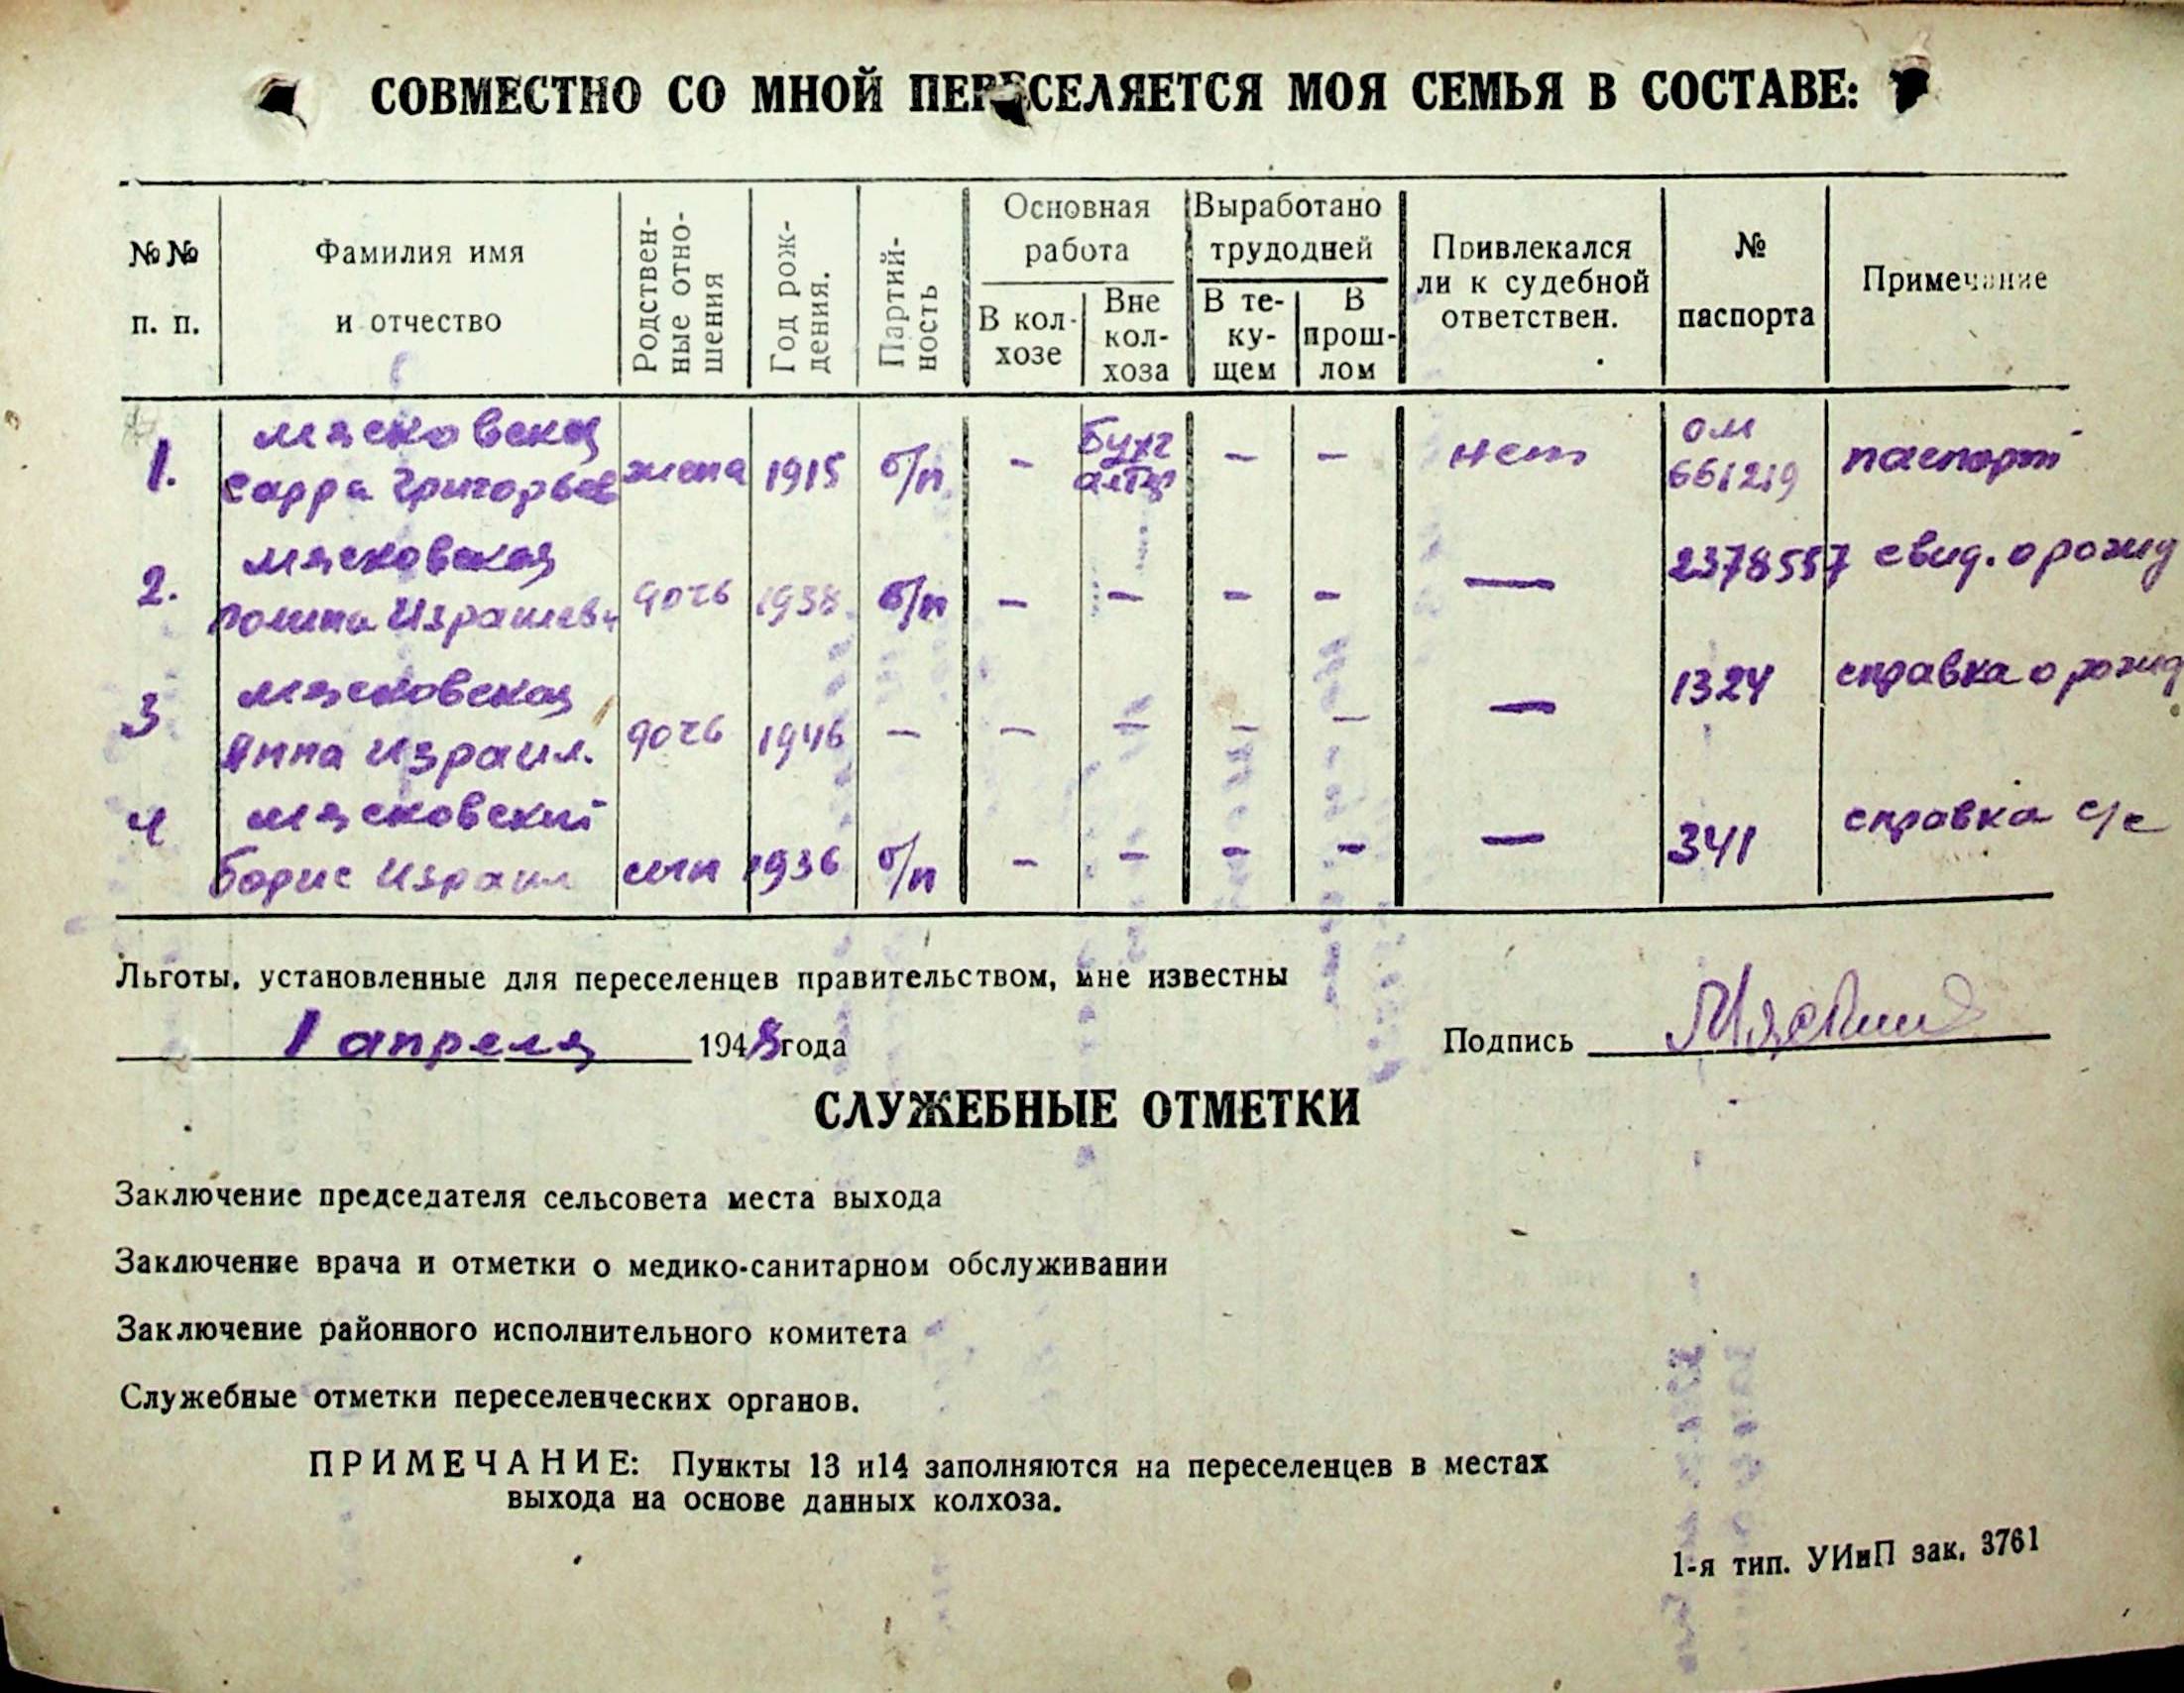 СОВМЕСТНО СО МНОЙ ПЕРЕСЕЛЯЕТСЯ МОЯ СЕМЬЯ В СОСТАВЕ:
№№ п. п.
Фамилия имя и отчество
Родствен-ные отно-шения
Год рож-дения.
Партий-ность
Основная работа
В кол-хозе
Вне кол-хоза
Выработано трудодней
В те-ку-щем
В прош-лом
Привлекался ли к судебной ответствен.
№ паспорта
Примечание
1. Мясковская Сарра Григорьев жена 1915 б/п - Бухгалтер - - нет ОМ 661219 паспорт
2. Мясковская Полина Израилевн дочь 1938 б/п - - - - — 2378557 свид. о рожд
3 Мясковская Анна Израил. дочь 1946 - - - - - — 1324 справка о рожд
4 Мясковский Борис Израил сын 1936 б/п - - - - — 341 справка с/с
Льготы, установленные для переселенцев правительством, мне известны
1 апреля 1948 года
Подпись
СЛУЖЕБНЫЕ ОТМЕТКИ
Заключение председателя сельсовета места выхода
Заключение врача и отметки о медико-санитарном обслуживании
Заключение районного исполнительного комитета
Служебные отметки переселенческих органов.
ПРИМЕЧАНИЕ: Пункты 13 и14 заполняются на переселенцев в местах
выхода на основе данных колхоза.
1-я тип. УИиП зак. 3761